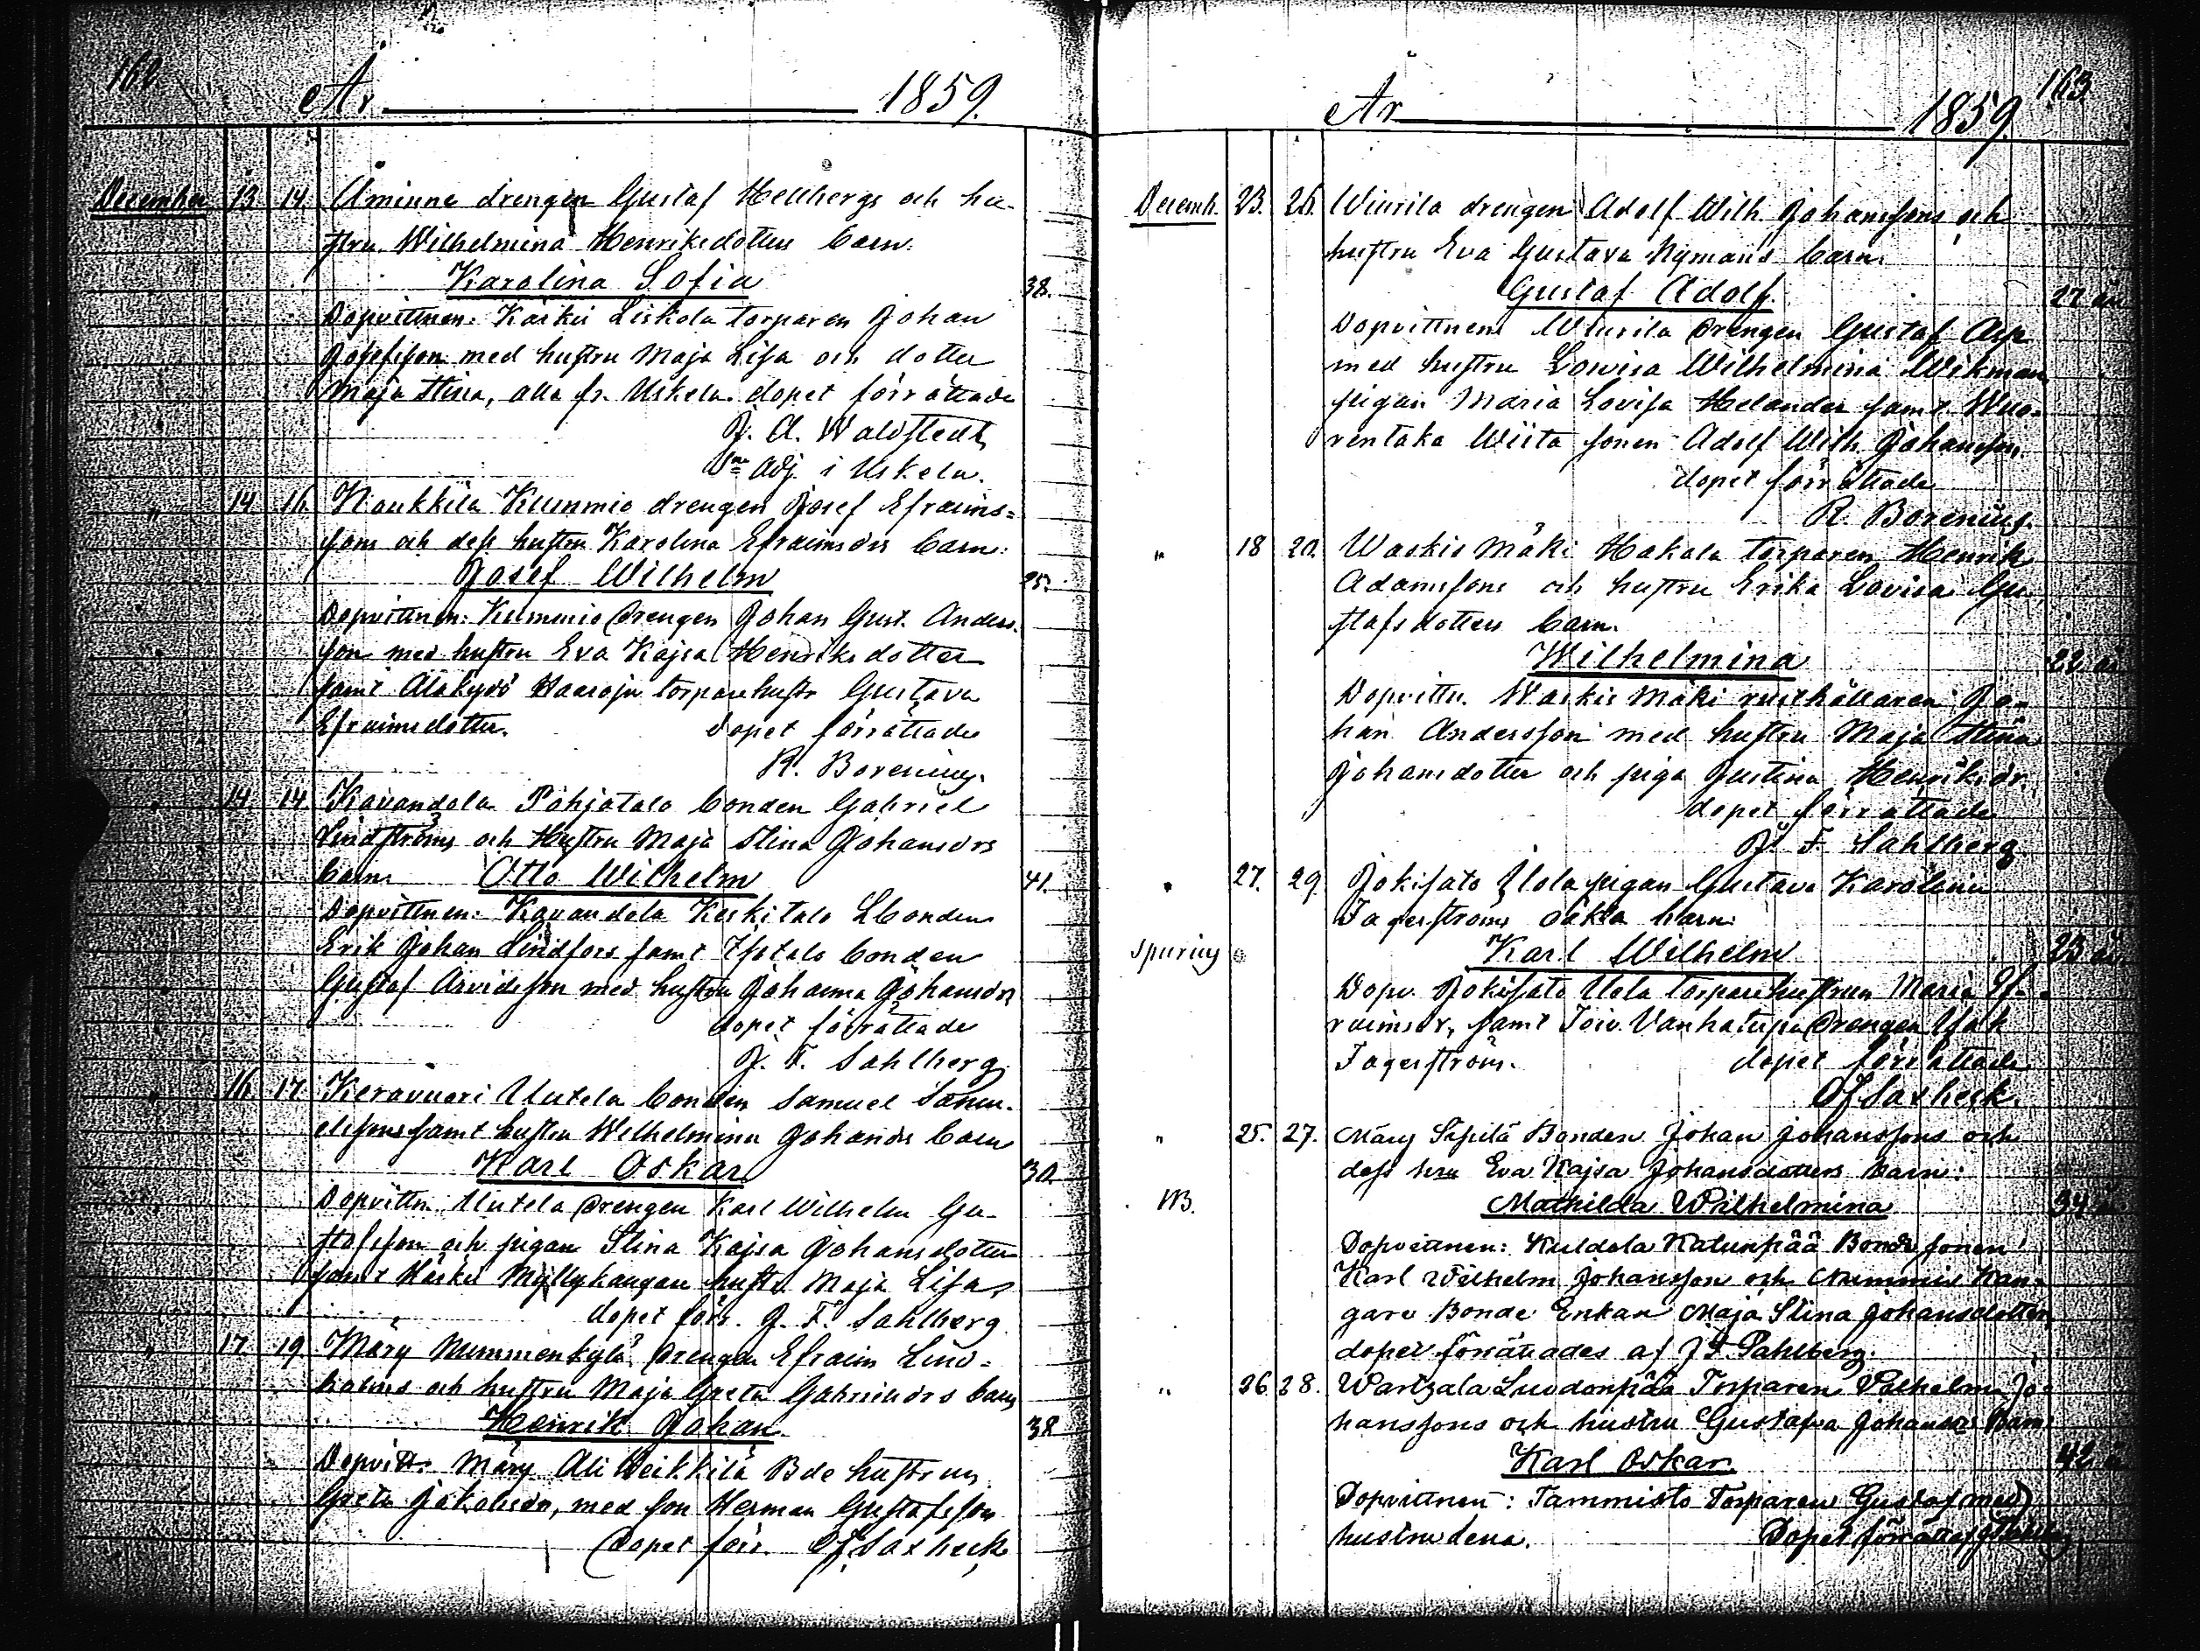 162
År 1859.
December 13 14. Åminne drengen Gustaf Hellbergs och hu-
stru Wilhelmina Henriksdotters barn.
Karolina Sofia 38.
Dopvittnen: Kärkis Liskola torparen Johan
Josefsson med hustru Maja Lisa och dotter
Maja Stina, alla fr. Uskela. dopet förrättade
J. A. Waldstedt
Adj. i Uskela.
" 14 16. Kaukkila Kummio drengen Josef Efraims=
sons och dess hustru Karolina Efraimsdrs barn:
Josef Wilhelm 25.
Dopvittnen: Kummio drengen Johan Gust. Anders-
son med hustru Eva Kajsa Henriksdotter
samt torparehustr Gustava
Efraimsdotter. dopet förrättade
R. Borenius.
" 14 14 Kavandola Pohjatalo bonden Gabriel
Lindströms och Hustru Maja Stina Johansdrs
barn Otto Wilhelm 41.
Dopvittnen: Kavandola Keskitalo Lbonden
Erik Johan Lindfors samt Isotalo bonden
Gustaf Arvidsson med hustru Johanna Johansdr
dopet förrättade
J. F. Sahlberg
" 16 17 Keravuori Uutela bonden Samuel Samu-
elssons samt hustru Wilhelmina Johansdrs barn
Karl Oskar 30
Dopvittn. Uutela drengen Karl Wilhelm Gu-
stafsson och pigan Stina Kajsa Johansdotter
samt Kärkis Myllykangan hustr. Maja Lisa
dopet förr. J. F. Sahlberg
" 17 19 Märy Nummenkylä drengen Efraim Lind-
holms och hustru Maja Greta Gabrielsdrs barn
Henrik Johan. 38
Dopvitt. Märy Ali Weikkilä Bde hustrun
Greta Jakobsdr, med son Herman Gustafsson
dopet förr. Saxbeck
163
År 1859.
Decemb. 23. 26. Wiurila drengen Adolf Wilh. Johanssons och
hustru Eva Gustava Nymans barn.
Gustaf Adolf 27 år
Dopvittnen Wiurila drengen Gustaf Asp
med hustru Lowisa Wilhelmina Wikman
pigan Maria Lovisa Helander samt Wuo-
rentaka Wiita sonen Adolf Wilh. Johansson.
dopet förrättade
R. Borenius.
" 18 20. Waskis Mäki Hakala torparen Henrik
Adamssons och hustru Erika Lovisa Gu-
stafsdotters barn.
Wilhelmina 22 år
Dopvittn. Waskis Mäki rusthållaren Jo-
han Andersson med hustru Maja Stina
Johansdotter och piga Justina Henriksdr.
dopet förrättade
J. F. Sahlberg
" 27. 29 Jokisato Uola pigan Gustava Karolina
Fagerströms oäkta barn:
spuring Karl Wilhelm 23 år
Dopv. Jokisato Uola torparehustrun Maria Ef-
raimsdr, samt Toiv. Vanhatupa drengen Isak
Fagerström. dopet förrättade
Saxbeck.
" 25. 27. Märy Sipilä Bonden Johan Johanssons och
dess hru Eva Kajsa Johansdotters barn:
NB. Mathilda Wilhelmina 34 år
Dopvittnen: Kuldola Katunpää Bonde sonen
Karl Wilhelm Johansson och Nummis Kan-
gare Bonde Enkan Maja Stina Johansdotter,
dopet förrättades af J F. Sahlberg.
" 26. 28. Wartsala Luodonpää Torparen Wilhelm Jo-
hanssons och hustru Gustafva Johansdr Barn
Karl Oskar. 42 år
Dopvittnen: Tammisto Torparen Gustaf med
hustru Lena. Dopet förrättes